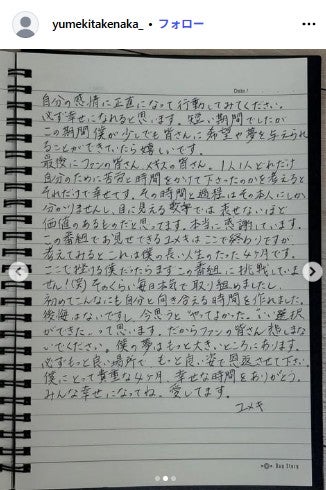 yumekitakenaka_ • フォロー
Date
自分の感情に正直になって行動してみてください。
必ず幸せになれると思います。短い期間でしたが
この期間僕が少しでも皆さんに希望や夢を与えられ
ることができていたら嬉しいです。
最後にファンの皆さん、メキスの皆さん。1人1人どれだけ
自分のために苦労と時間をかけて下さったのかを考えると
それだけで幸せです。その時間と過程はその本人にしか
分かりませんし、目に見える数字では表せないほど
価値のあるものだと思ってます。本当に感謝しています。
この番組でお見せできるユメキはここで終わりですが、
考えてみるとこれは僕の長い人生のたった4ヶ月です。
ここで挫ける僕だったらまずこの番組に挑戦していま
せん!(笑) そのくらい毎日本気で取り組めましたし、
初めてこんなにも自分と向き合える時間を作れました。
後悔はないですし、今思うと"やってよかった。いい選択
ができた。"って思います。だからファンの皆さん悲しまな
いでください。僕の夢はもっと大きいところにあります。
必ずもっと良い場所で、もっと良い姿で恩返させて下さい。
僕にとって貴重な4ヶ月、幸せな時間をありがとう。
みんな幸せになってね。愛してます。
ユメキ